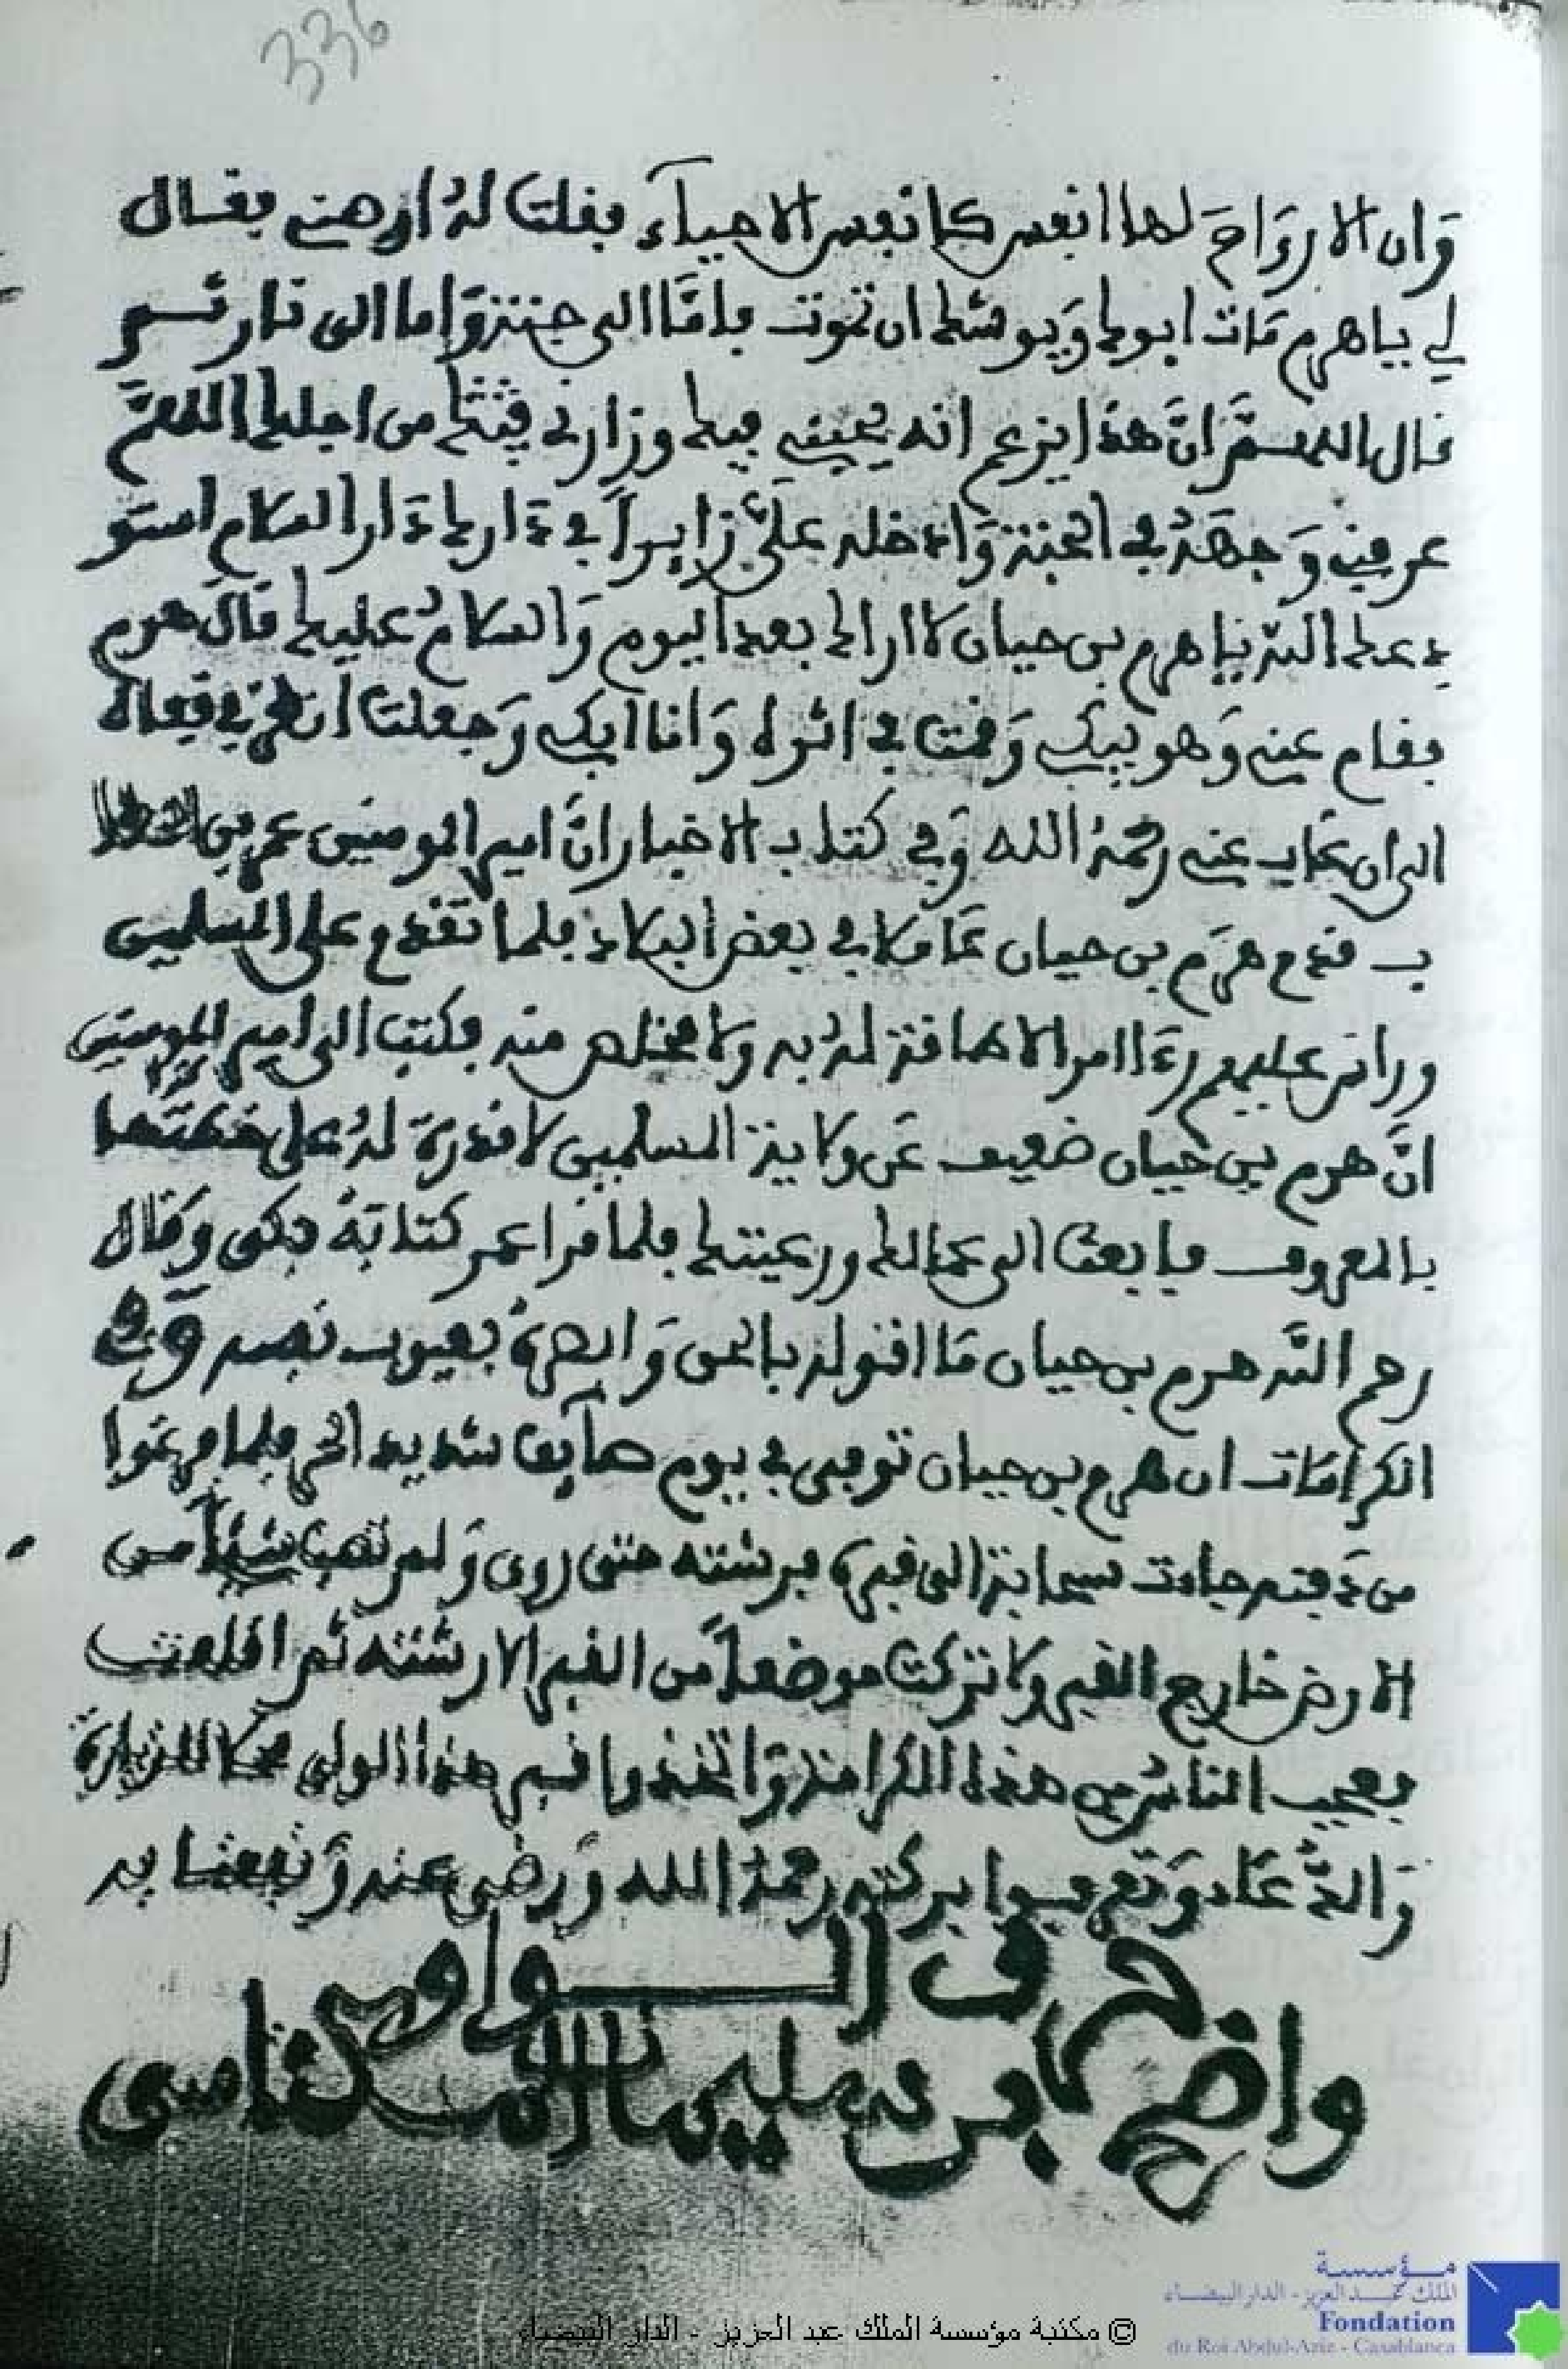 336
وان الارواح لها انفس كانفس الاحياء فقلت له اوصني فقال
لي ياهرم مات ابوك ويوشك ان تموت فاما الى جنة واما الى نار ثم
قال اللهم ان هذا يزعم انه يحبني فيك وزارني من اجلك اللهم
عرفني وجهه في الجنة وادخله علي زايرا في دارك دار السلام استو
دعك الله ياهرم بن حيان لا اراك بعد اليوم والسلام عليك قال هرم
فقام عني وهو يبكي وقمت في اثره وانا ابكي وجعلت انظر في قفاه
الى ان غاب عني رحمة الله وفي كتاب الاخبار ان امير المومنين عمر بن الخطا
ب قدم هرم بن حيان عاملا في بعض البلاد فلما تقدم على المسلمين
وراس عليهم رءا امرا لا طاقة له به ولا مخلص منه فكتب الى امير المومنين
ان هرم بن حيان ضعيف عن ولاية المسلمين لا قدرة له على
بالمعروف فابعث الى عمالك ورعيتك فلما قرا عمر كتابه بكى وقال
رحم الله هرم بن حيان ما اقوله بالحق وابصره بعيوب نفسه
الكرامات ان هرم بن حيان توفي في يوم صايف شديد الحر فلما فرغوا
من دفنه جاءت سحابة الى قبره فرشته حتى روي ولم تصب شيئا من
الارض خارج القبر ولا تركت موضعا من القبر الا رشته ثم اقلعت
فعجب الناس من هذه الكرامة واتخذوا قبر هذا الولي محلا للزيارة
والدعاء وتعرضوا بركته رحمة الله ورضي عنه ونفعنا به
حرف الواو
واضح بن سليمان المكناسي
مؤسسة
الملك عبد العزيز - الدار البيضاء
Fondation
du Roi Abdul-Aziz - Casablanca
© مكتبة مؤسسة الملك عبد العزيز - الدار البيضاء